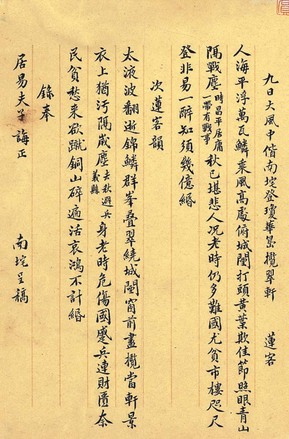 九日大風中偕南埞登瓊華島攬翠軒　蓮客
人海平浮萬瓦鱗乘風高處俯城闉打頭黃葉欺佳節照眼青山
隔戰塵時昌平居庸一帶有戰事秋已堪悲人況老時仍多難國尤貧市樓咫尺
登非易一醉知須幾億緡
次蓮客韻
太液波翻逝錦鱗群峯叠翠繞城闉窗前畫攬當軒景
衣上猶污隔歲塵去秋避兵義縣身老時危傷國蹙兵連財匱奈
民貧愁來欲蹴銅山碎遍活哀鴻不計緡
錄奉
居易夫子誨正
南埞呈稿